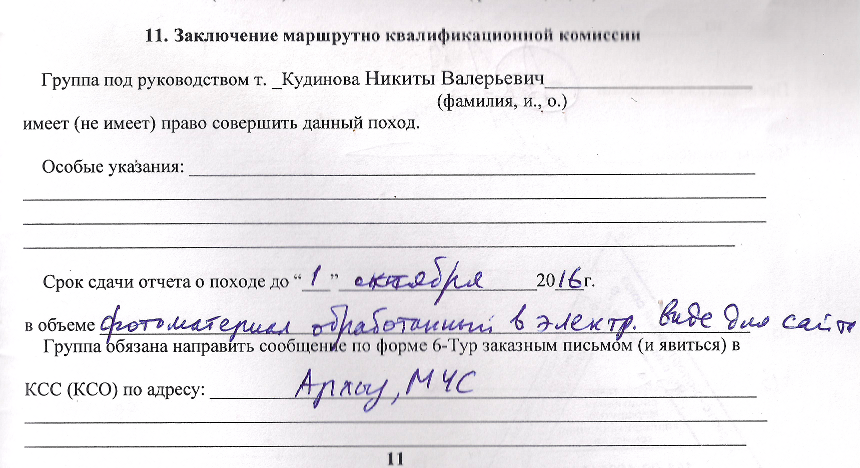 11. Заключение маршрутно квалификационной комиссии
Группа под руководством т. _Кудинова Никиты Валерьевич
(фамилия, и., о.)
имеет (не имеет) право совершить данный поход.
Особые указания:
Срок сдачи отчета о походе до “ 1 ” октября 2016г.
в объеме фотоматериал обработанный в электр. виде для сайта
Группа обязана направить сообщение по форме 6-Тур заказным письмом (и явиться) в
КСС (КСО) по адресу: Архыз, МЧС
11